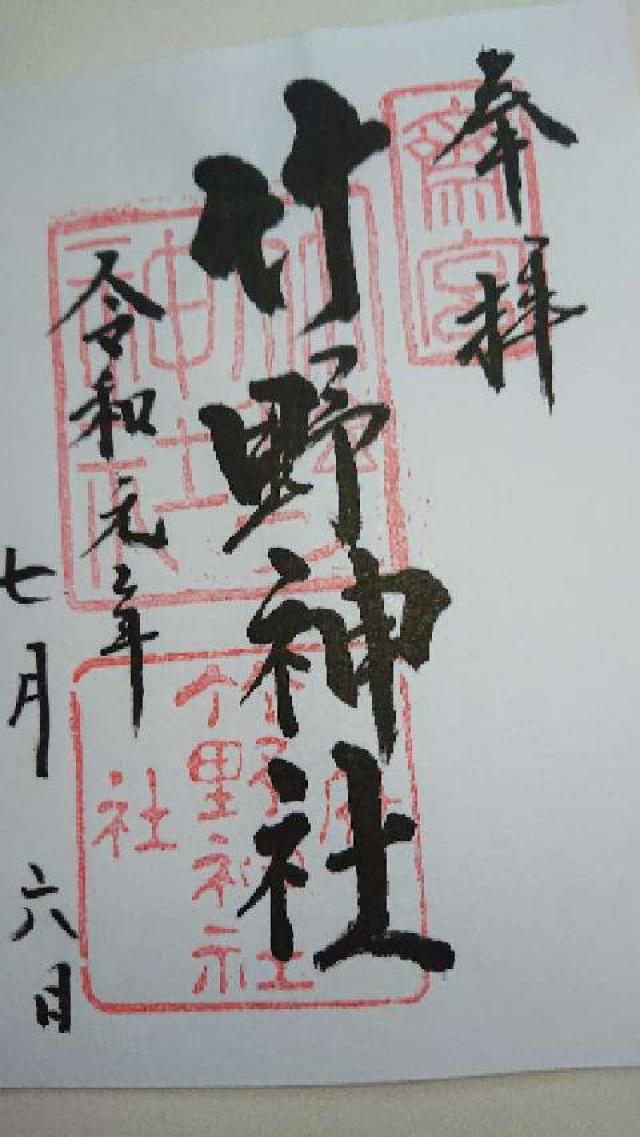 奉拝
齋宮
竹野神社
竹野神社
府社
令和元年
七月六日